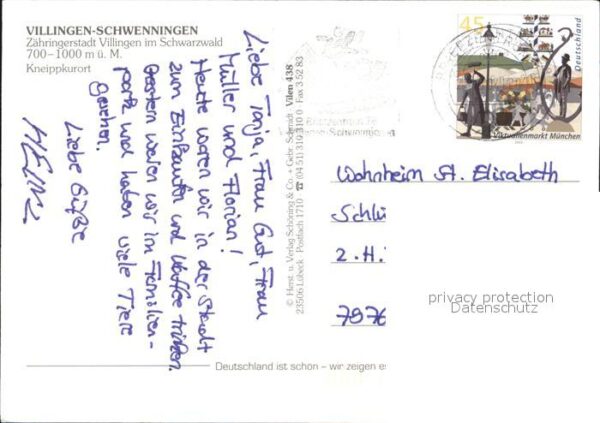 VILLINGEN-SCHWENNINGEN
Zähringerstadt Villingen im Schwarzwald
700-1000 m ü. M.
Kneippkurort
Liebe Tanja, Frau Gut, Frau
Müller und Florian!
Heute waren wir in der Stadt
zum Einkaufen und Kaffee trinken.
Gestern waren wir im Familien-
park und haben viele Tiere
gesehen.
Liebe Grüße
HEINZ
© Herst. u. Verlag Schöning & Co. + Gebr. Schmidt Vilen 438
23506 Lübeck Postfach 1710 ☎ (04 51) 3 10 31 0 Fax 3 52 83
45
Deutschland
Viktualienmarkt München
Wohnheim St. Elisabeth
Schlü
2. H.
7976
privacy protection
Datenschutz
Deutschland ist schön – wir zeigen es